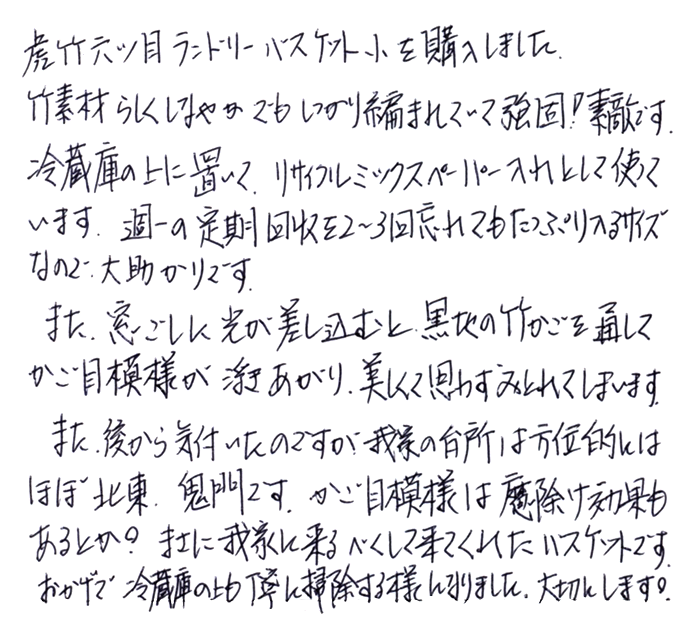 虎竹六ツ目ランドリーバスケット小を購入しました.
竹素材らしくしなやかでもしっかり編まれていて強固!素敵です.
冷蔵庫の上に置いて、リサイクルミックスペーパー入れとして使って
います. 週一の定期回収を2~3回忘れてもたっぷり入るサイズ
なので、大助かりです.
また、窓ごしに光が差し込むと、黒地の竹かごを通して
かご目模様が浮きあがり、美しくて思わずみとれてしまいます.
また、後から気付いたのですが、我家の台所は方位的には
ほぼ北東、鬼門です. かご目模様は魔除け効果も
あるとか? まさに我家に来るべくして来てくれたバスケットです.
おかげで冷蔵庫の上も丁寧に掃除する様になりました. 大切にします。